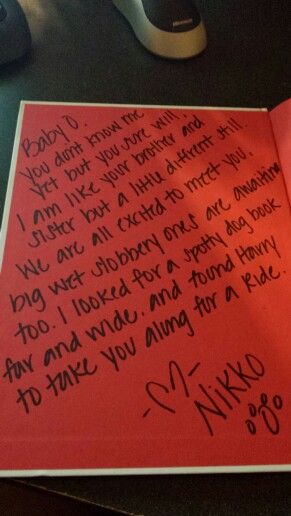 Baby O.
You dont know me
yet but you sure will,
I am like your brother and
sister but a little diffrent still
We are all excited to meet you.
big wet slobbery ones are awaiting
too. I looked for a spotty dog book
far and wide. and found Harry
to take you along for a Ride.
Nikko